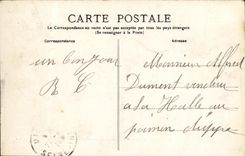 CARTE POSTALE
La Correspondance au recto n'est pas acceptée par tous les pays étrangers
(Se renseigner à la Poste)
Correspondance
Adresse
un bonjour
R C
Monsieur Alfred
Dumont vendeur
à la Halle au
poisson dieppe